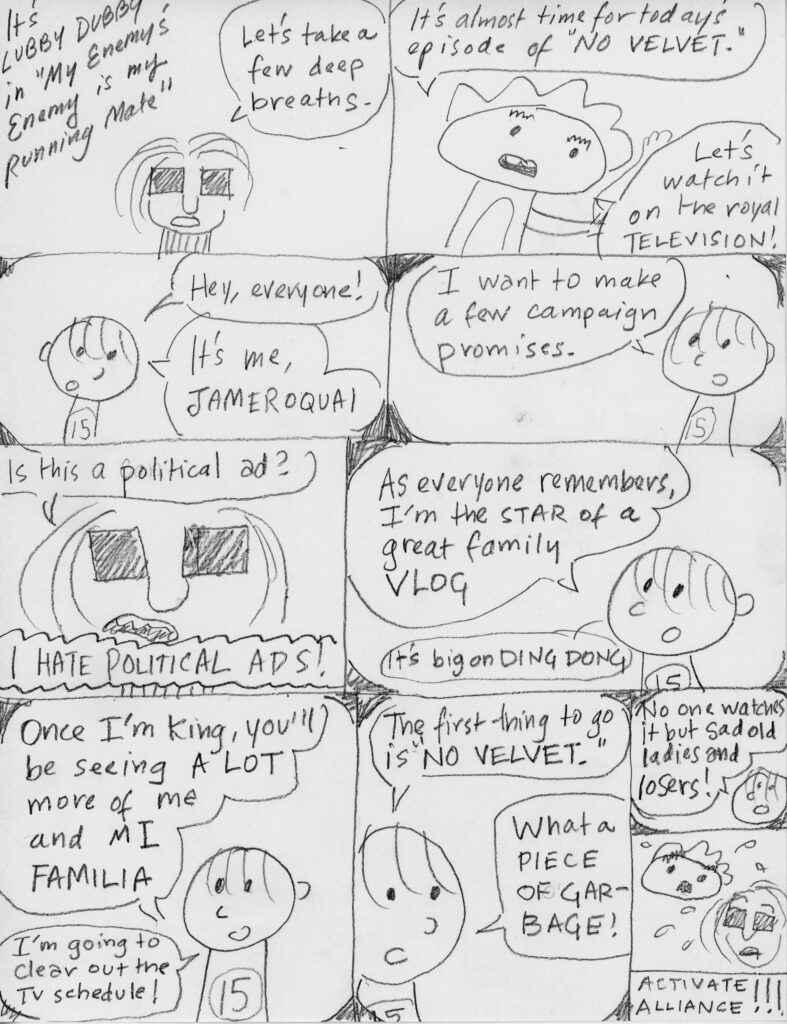 It's
LUBBY DUBBY
in "My Enemy's
Enemy is my
Running Mate"
Let's take a
few deep
breaths.
It's almost time for today's
episode of "NO VELVET."
Let's
watch it
on the royal
TELEVISION!
Hey, everyone!
It's me,
JAMEROQUAI
15
I want to make
a few campaign
promises.
15
Is this a political ad?
I HATE POLITICAL ADS!
As everyone remembers,
I'm the STAR of a
great family
VLOG
It's big on DING DONG
15
Once I'm King, you'll
be seeing A LOT
more of me
and MI
FAMILIA
I'm going to
clear out the
TV schedule!
15
The first thing to go
is "NO VELVET."
What a
PIECE
OF GAR-
BAGE!
15
No one watches
it but sad old
ladies and
losers!
ACTIVATE
ALLIANCE!!!